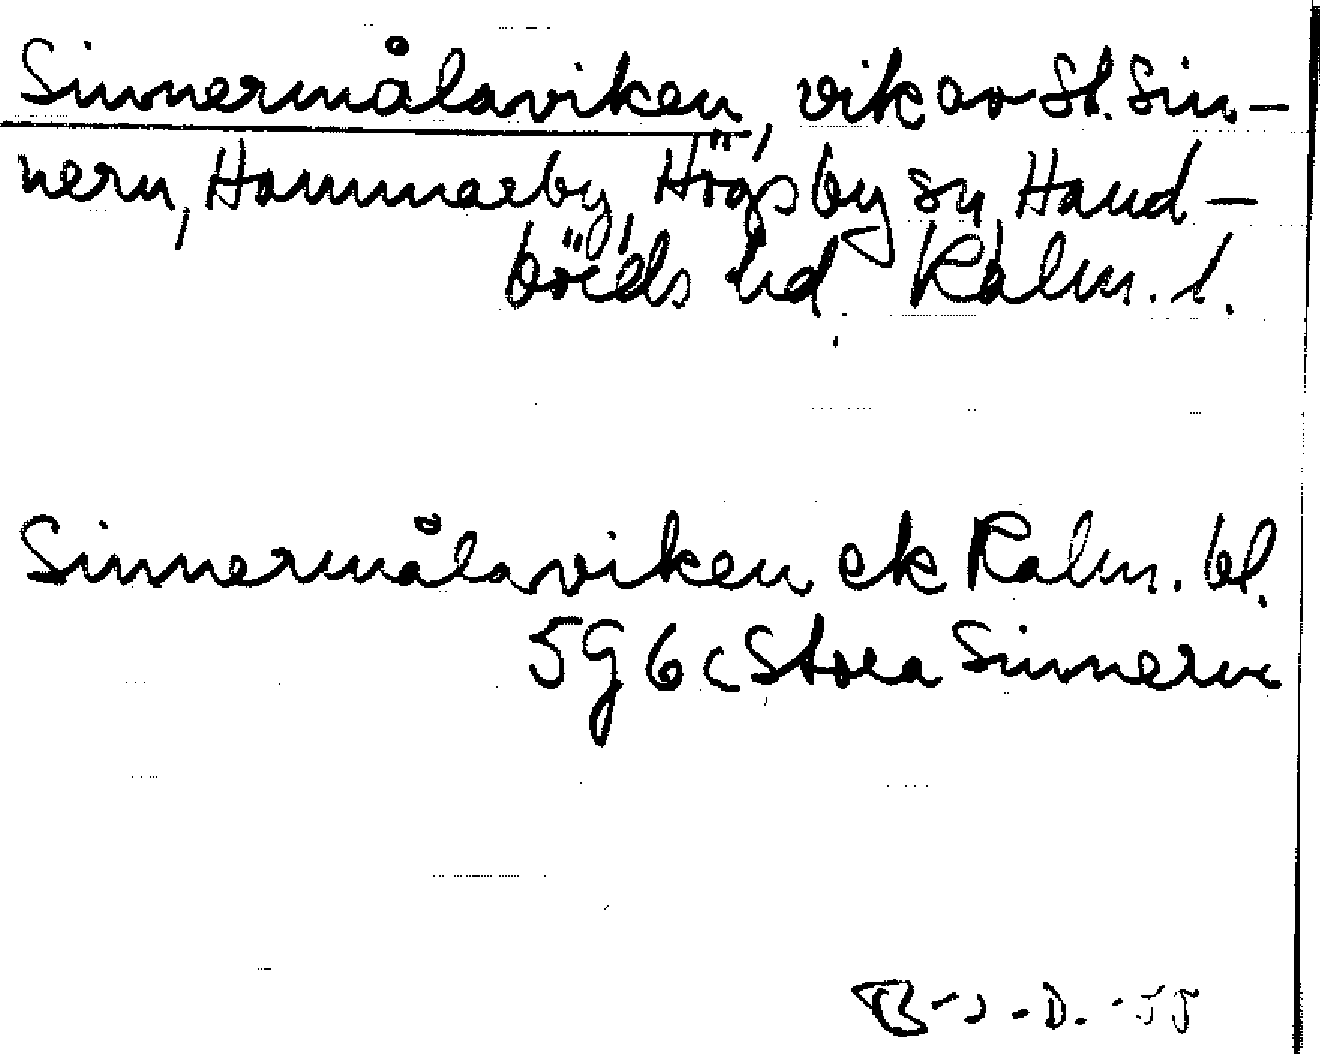 Sinnermålaviken, vik av St. Sin-
nern, Hammarby, Högsby sn, Hand-
börds hd Kalm. l.
Sinnermålaviken ek Kalm. bl.
5G 6c Stora Sinnern
B-J-D.-55